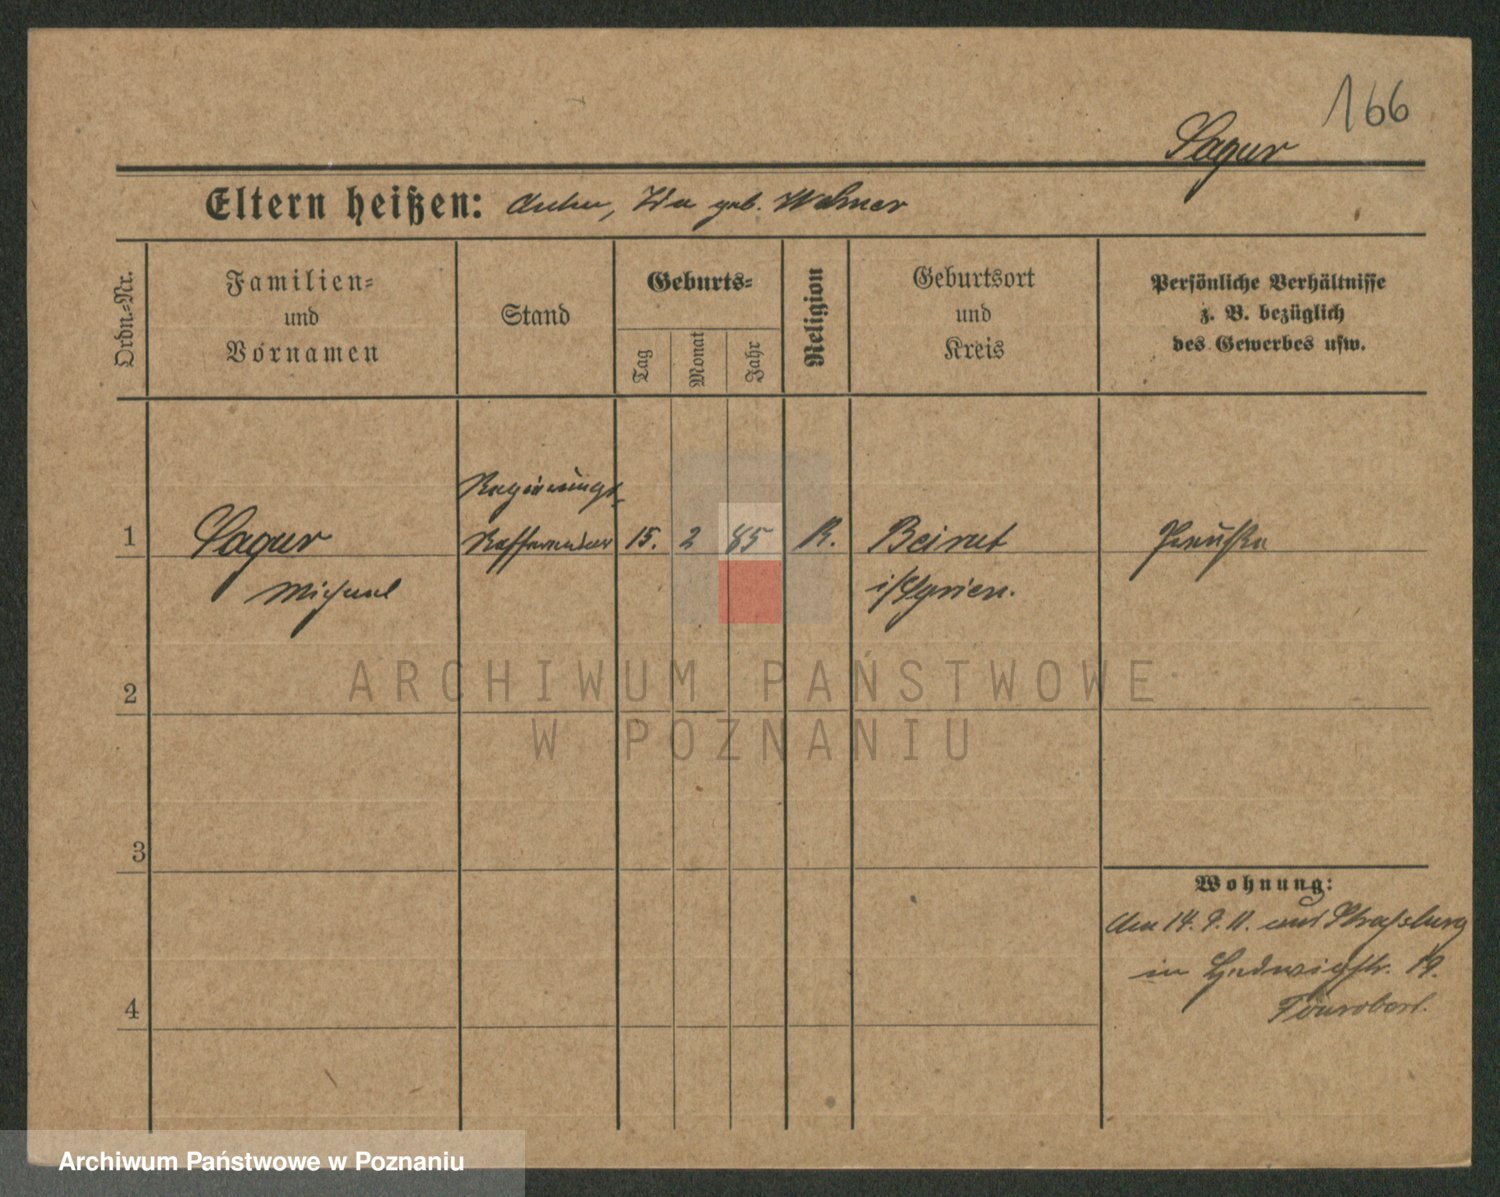 166
Sagur
Eltern heißen: Anton, Ida geb. Wehner
Ordn.=Nr.
Familien=
und
Vornamen
Stand
Geburts=
Tag
Monat
Jahr
Religion
Geburtsort
und
Kreis
Persönliche Verhältnisse
z. B. bezüglich
des Gewerbes usw.
Regierungs-
1 Sagur Referendar 15. 2 85 K. Beirut Preuße
Michael i/Syrien.
2
3
4
Wohnung:
Am 14. 9. 11. aus Straßburg
in Hedwigstr. 19.
ARCHIWUM PAŃSTWOWE
W POZNANIU
Archiwum Państwowe w Poznaniu